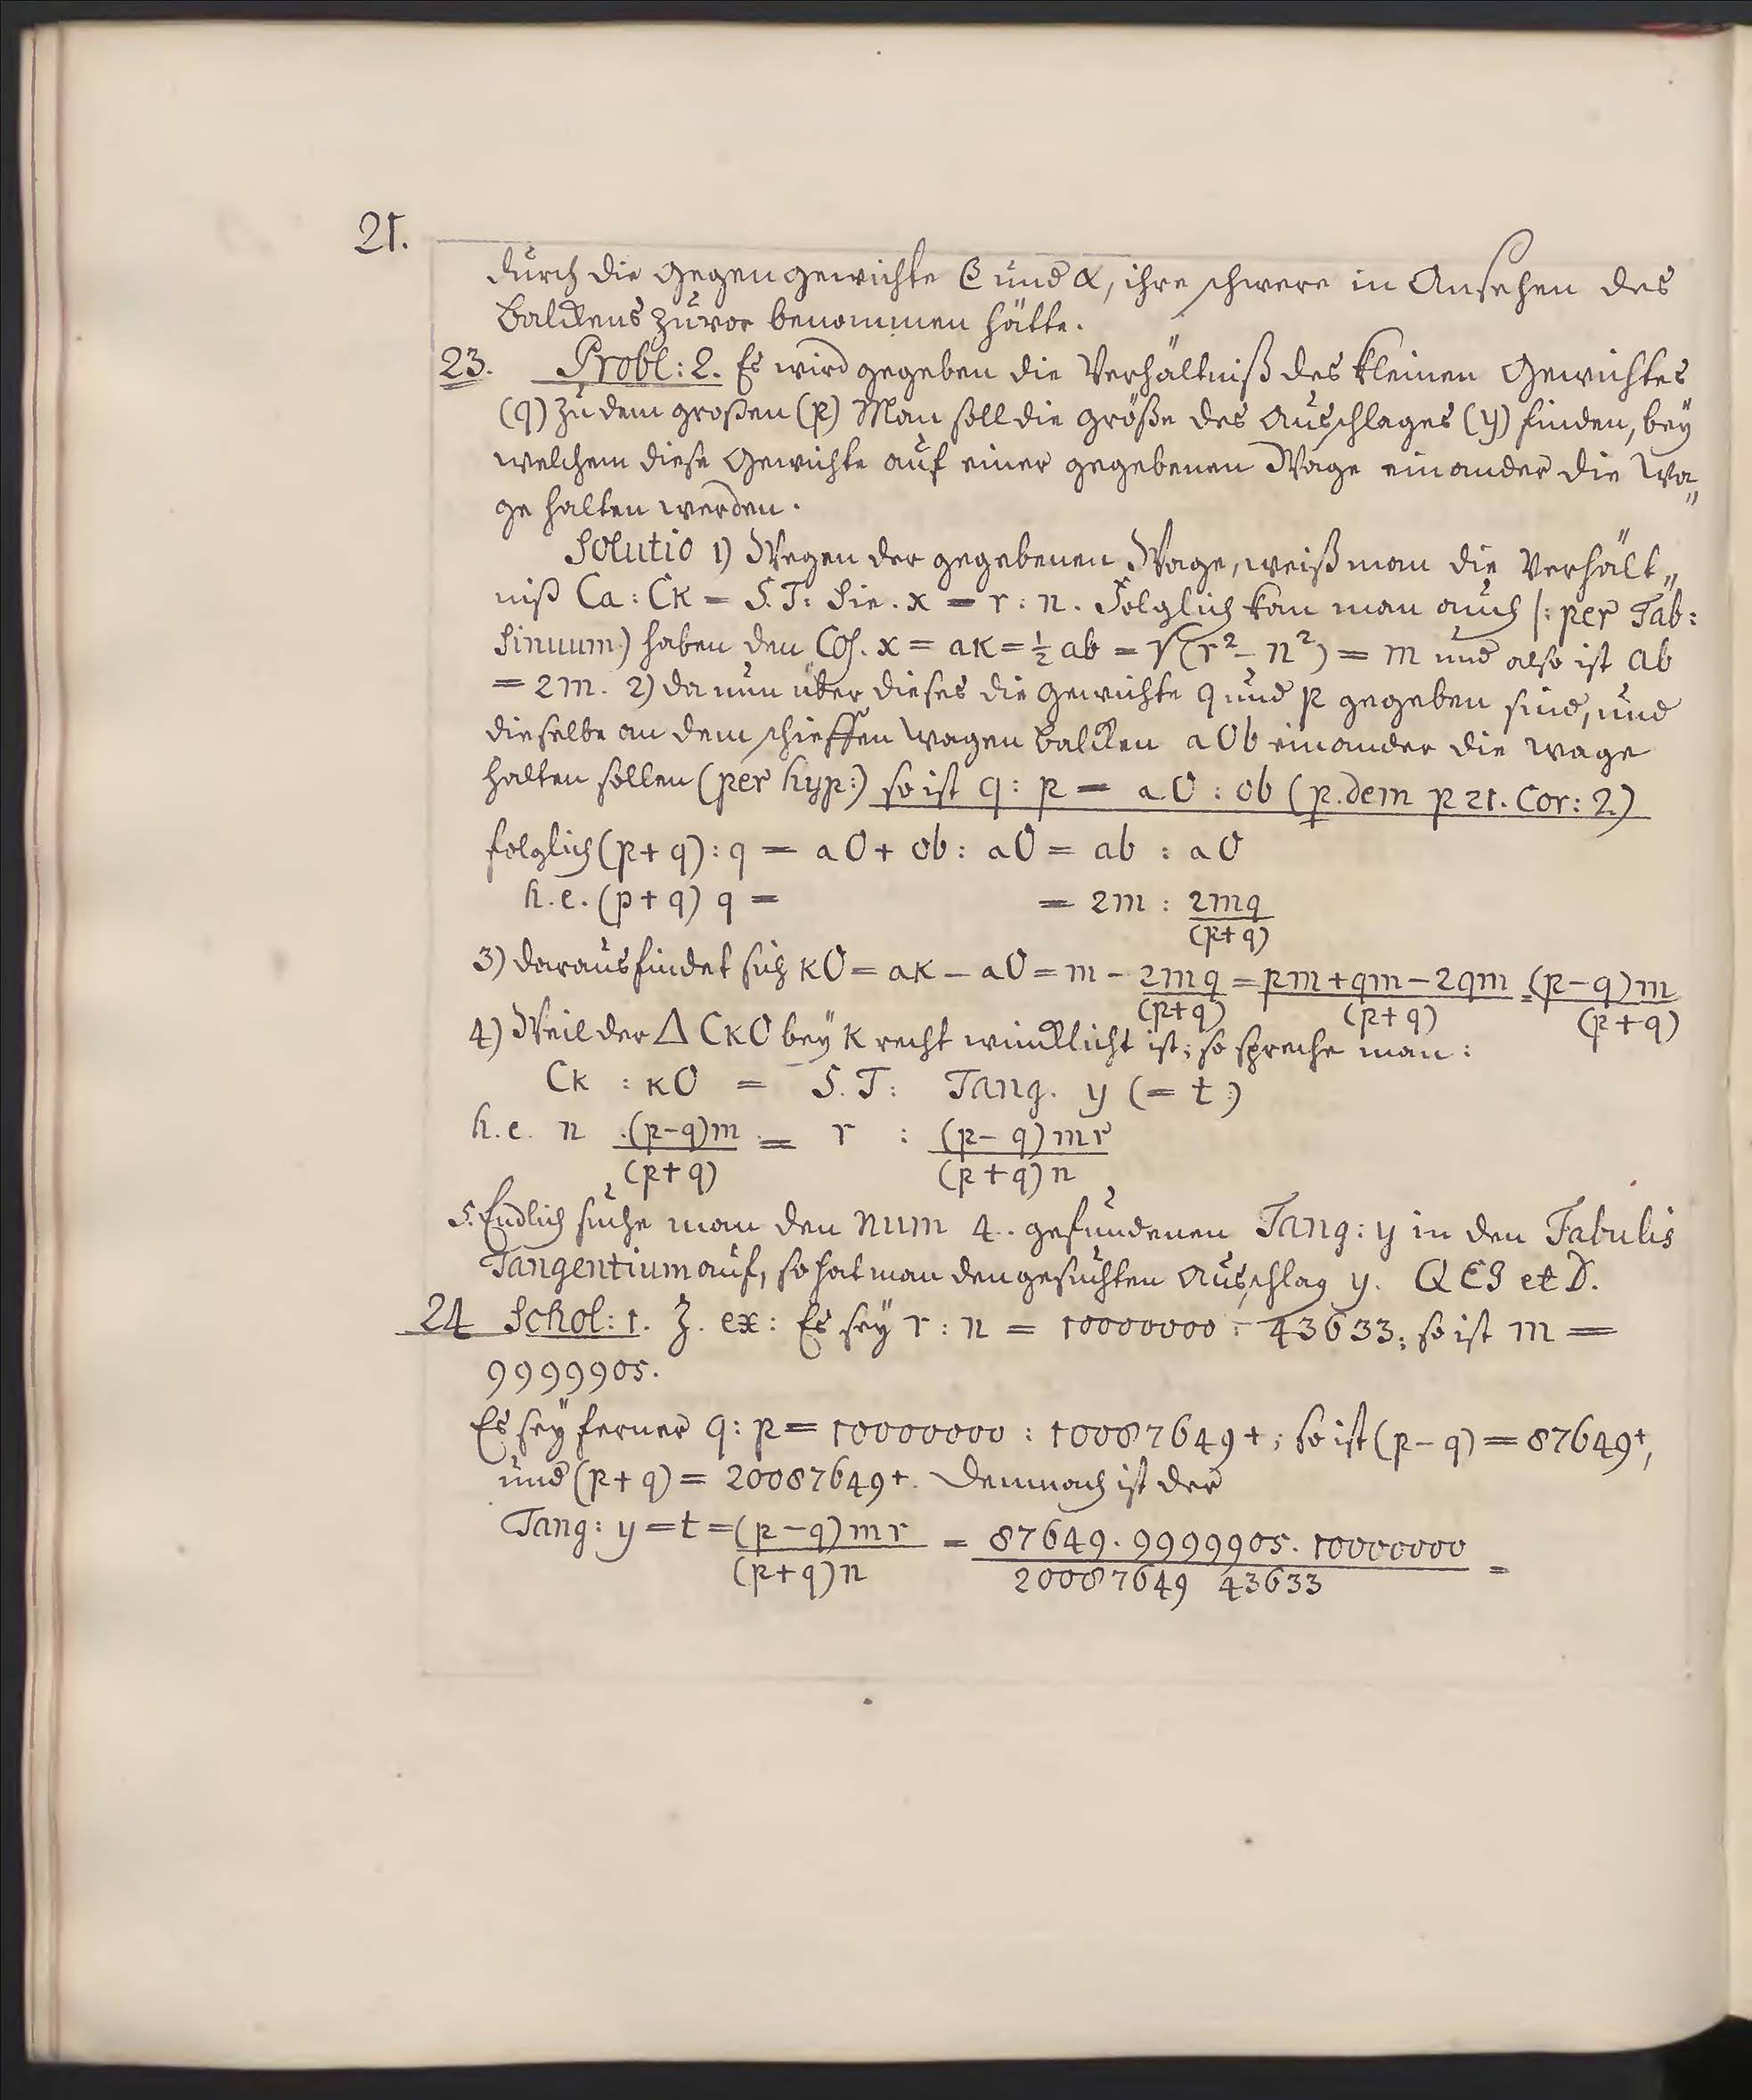 21.
durch die Gegengewichte β und α, ihre schwere in Ansehen des
Balckens zuvor benommen hätte.
23. Probl: 2. Es wird gegeben die Verhältniß des kleinen Gewichtes
(q) zu dem großen (p) Man soll die größe des Ausschlages (y) finden, bey
welchem diese Gewichte auf einer gegebenen Wage einander die Wa„
ge halten werden.
Solutio 1) Wegen der gegebenen Wage, weiß man die Verhält„
niß Ca : CK = S.T: Sin. x = r : n. Folglich kan man auch |: per Tab:
Sinuum) haben den Cos. x = aK = ½ ab = √(r² - n²) = m und also ist ab
= 2m. 2) da nun über dieses die Gewichte q und p gegeben sind, und
dieselbe an dem schieffen Wagen Balcken aOb einander die wage
halten sollen (per hyp:) so ist q : p = aO : Ob (p. dem p 21. Cor: 2)
folglich (p + q) : q = aO + Ob : aO = ab : aO
h.e. (p + q) q = = 2m : 2mq/(p+q)
3) daraus findet sich KO = aK – aO = m – 2mq/(p+q) = pm + qm – 2qm/(p+q) = (p – q)m/(p + q)
4) Weil der Δ CKO bey K recht wincklicht ist; so spreche man:
CK : KO = S.T: Tang. y (= t)
h.e. n : (p-q)m/(p+q) = r : (p – q) mr/(p + q) n
5. Endlich suche man den num 4. gefundenen Tang: y in den Tabulis
Tangentium auf, so hat man den gesuchten Ausschlag y. QEI et D.
24 Schol: 1. Z. ex: Es sey r : n = 10000000 : 43633; so ist m =
9999905.
Es sey ferner q : p = 10000000 : 10087649+; so ist (p – q) = 87649+,
und (p + q) = 20087649+. Demnach ist der
Tang: y = t = (p – q) mr/(p + q) n = 87649. 9999905. 10000000/20087649 43633 =